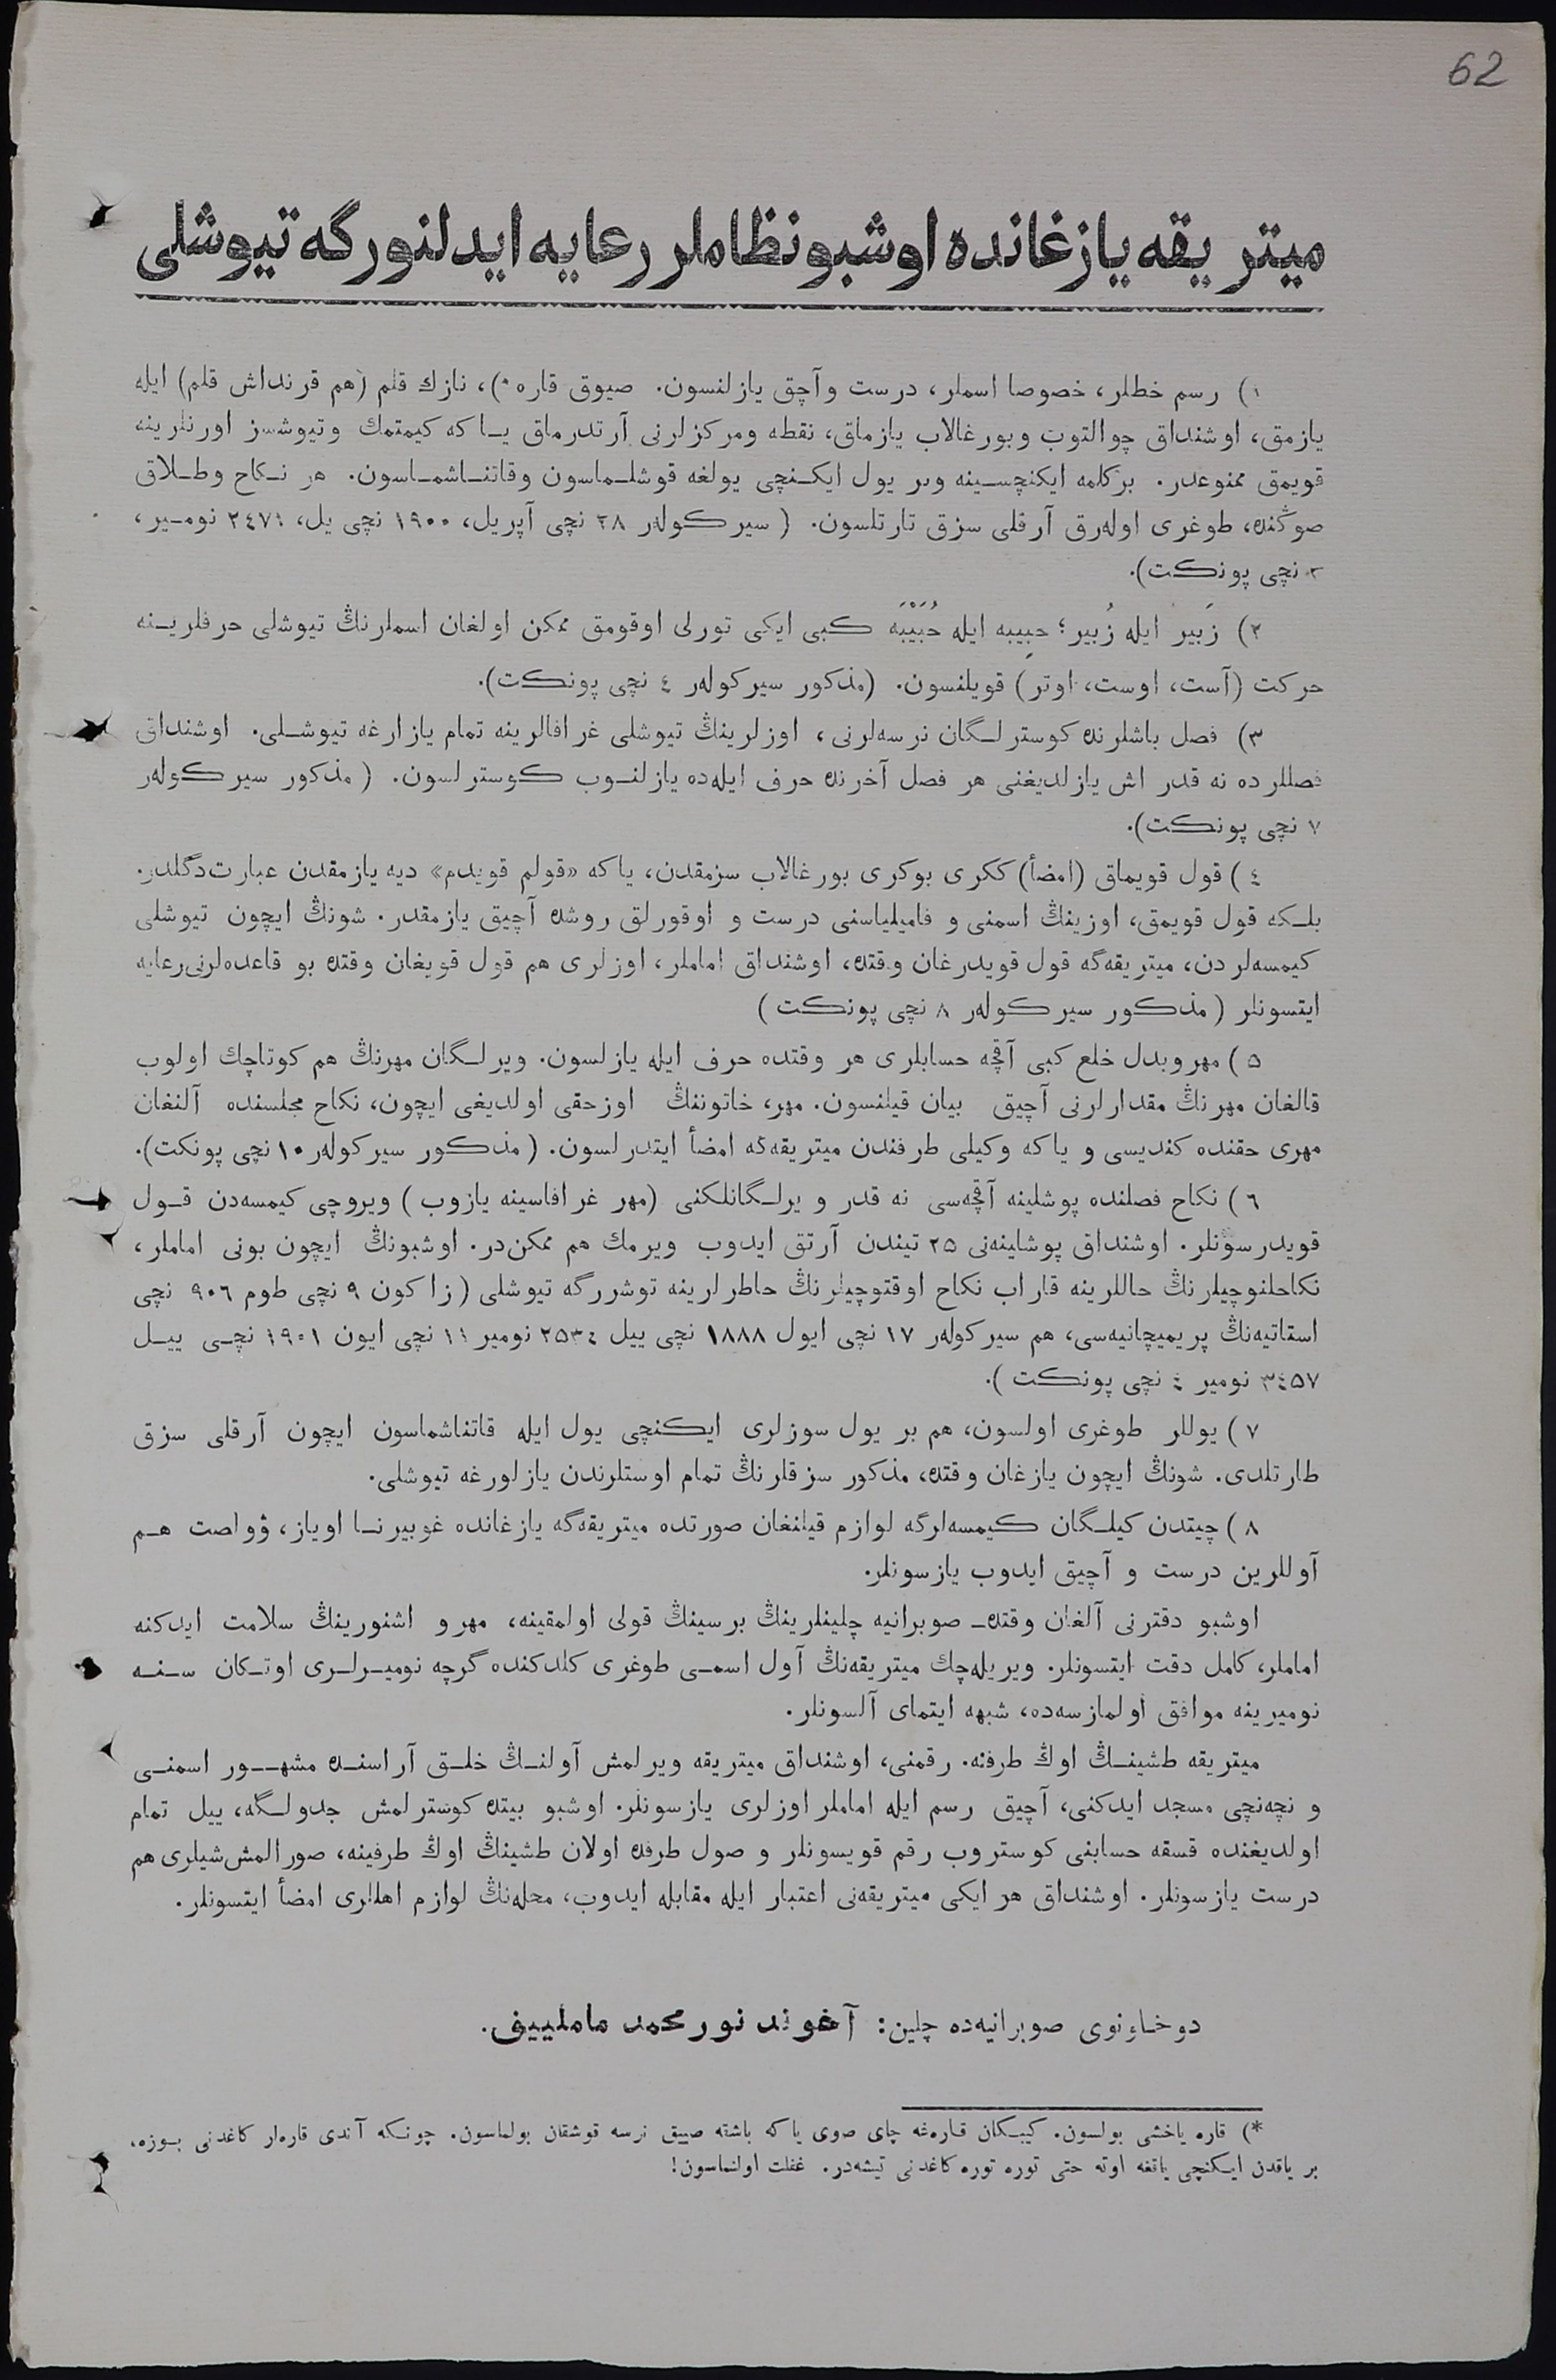 62
ميتريقه يازغانده اوشبو نظاملر رعايه ايدلنورگه تيوشلى
١) رسم خطلر، خصوصا اسملر، درست وآچق يازلنسون. صيوق قاره*)، نازك قلم (هم قرنداش قلم) ايله
يازمق، اوشنداق چوالتوب وبورغالاب يازماق، نقطه ومركزلرنى آرتدرماق ياكه كيمتمك وتيوشسز اورنلرينه
قويمق ممنوعدر. بركلمه ايكنچسينه وبر يول ايكنچى يولغه قوشلماسون وقاتناشماسون. هر نكاح وطلاق
صوڭنده، طوغرى اولەرق آرقلى سزق تارتلسون. (سيركولەر ٢٨ نچى آپريل، ١٩٠٠ نچى يل، ٢٤٧١ نومير،
٢ نچى پونكت).
٢) زَبير ايله زُبير؛ حبِيبه ايله حُبَيْبَه كبى ايكى تورلى اوقومق ممكن اولغان اسملرنڭ تيوشلى حرفلرينه
حركت (آست، اوست، اوتر) قويلنسون. (مذكور سيركولەر ٤ نچى پونكت).
٣) فصل باشلرنده كوسترلگان نرسەلرنى، اوزلرينڭ تيوشلى غرافالرينه تمام يازارغه تيوشلى. اوشنداق
فصللرده نه قدر اش يازلديغنى هر فصل آخرنده حرف ايلەده يازلنوب كوسترلسون. (مذكور سيركولەر
٧ نچى پونكت).
٤) قول قويماق (امضأ) ككرى بوكرى بورغالاب سزمقدن، ياكه «قولم قويدم» ديه يازمقدن عبارت دگلدر.
بلكه قول قويمق، اوزينڭ اسمنى و فاميلياسنى درست و اوقورلق روشده آچيق يازمقدر. شونڭ ايچون تيوشلى
كيمسەلردن، ميتريقەگه قول قويدرغان وقتده، اوشنداق اماملر، اوزلرى هم قول قويغان وقتده بو قاعدەلرنى رعايه
ايتسونلر (مذكور سيركولەر ٨ نچى پونكت)
٥) مهر وبدل خلع كبى آقچه حسابلرى هر وقتده حرف ايله يازلسون. ويرلگان مهرنڭ هم كوتاچك اولوب
قالغان مهرنڭ مقدارلرنى آچيق بيان قيلنسون. مهر، خاتوننڭ اوزحقى اولديغى ايچون، نكاح مجلسنده آلنغان
مهرى حقنده كنديسى و ياكه وكيلى طرفندن ميتريقەگه امضأ ايتدرلسون. (مذكور سيركولەر ١٠ نچى پونكت).
٦) نكاح فصلنده پوشلينه آقچەسى نه قدر ويرلگانلكنى (مهر غرافاسينه يازوب) ويروچى كيمسەدن قول
قويدرسونلر. اوشنداق پوشلينەنى ٢٥ تيندن آرتق ايدوب ويرمك هم ممكن‌در. اوشبونڭ ايچون بونى اماملر،
نكاحلنوچيلرنڭ حاللرينه قاراب نكاح اوقتوچيلرنڭ خاطرلرينه توشررگه تيوشلى (زاكون ٩ نچى طوم ٩٠٦ نچى
استاتيەنڭ پريميچانيەسى، هم سيركولەر ١٧ نچى ايول ١٨٨٨ نچى ييل ٢٥٣٤ نومير ١١ نچى ايون ١٩٠١ نچى ييل
٣٤٥٧ نومير ٤ نچى پونكت).
٧) يوللر طوغرى اولسون، هم بر يول سوزلرى ايكنچى يول ايله قاتناشماسون ايچون آرقلى سزق
طارتلدى. شونڭ ايچون يازغان وقتده، مذكور سزقلرنڭ تمام اوستلرندن يازلورغه تيوشلى.
٨) چيتدن كيلگان كيمسەلرگه لوازم قيلنغان صورتده ميتريقەگه يازغانده غوبيرنا اوياز، ؤواصت هم
آوللرين درست و آچيق ايدوب يازسونلر.
اوشبو دفترنى آلغان وقتده صوبرانيه چلينلرينڭ برسينڭ قولى اولمقينه، مهر و اشنورينڭ سلامت ايدكنه
اماملر، كامل دقت ايتسونلر. ويريلەچك ميتريقەنڭ آول اسمى طوغرى كلدكنده گرچه نوميرلرى اوتكان سنه
نوميرينه موافق اولمازسەده، شبهه ايتماى آلسونلر.
ميتريقه طشينڭ اوڭ طرفنه. رقمنى، اوشنداق ميتريقه ويرلمش آولنڭ خلق آراسنده مشهور اسمنى
و نچەنچى مسجد ايدكنى، آچيق رسم ايله اماملر اوزلرى يازسونلر. اوشبو بيتده كوسترلمش جدولگه، ييل تمام
اولديغنده قسقه حسابنى كوستروب رقم قويسونلر و صول طرفده اولان طشينڭ اوڭ طرفينه، صورالمش شيلرى هم
درست يازسونلر. اوشنداق هر ايكى ميتريقەنى اعتبار ايله مقابله ايدوب، محلەنڭ لوازم اهللرى امضأ ايتسونلر.
دوخاونوى صوبرانيەده چلين: آخوند نورمحمد ماملييف.
*) قاره ياخشى بولسون. كيبكان قارەغه چاى صوى ياكه باشقه صييق نرسه قوشقان بولماسون. چونكه آندى قارەلر كاغدنى بوزه،
بر ياقدن ايكنچى ياقغه اوته حتى توره توره كاغدنى تيشەدر. غفلت اولنماسون!